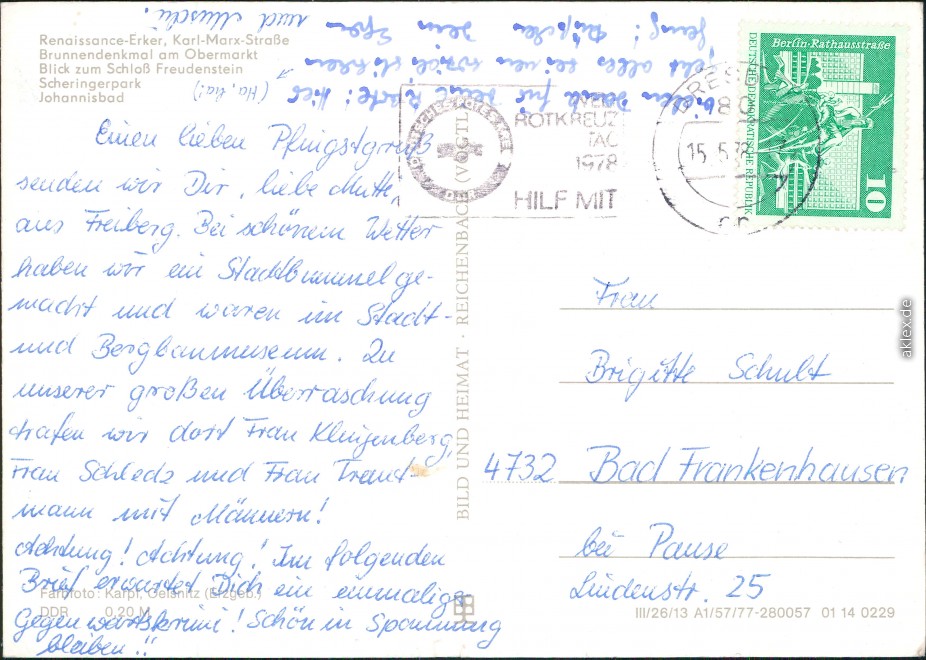 Renaissance-Erker, Karl-Marx-Straße
Brunnendenkmal am Obermarkt
Blick zum Schloß Freudenstein
Scheringerpark
Johannisbad
Einen lieben Pfingstgruß
senden wir Dir, liebe Mutti,
aus Freiberg. Bei schönem Wetter
haben wir ein Stadtbummel ge-
macht und waren im Stadt-
und Bergbaumuseum. Zu
unserer großen Überraschung
trafen wir dort Frau Klingenberg,
Frau Schledz und Frau Traut-
mann mit Männern!
Achtung! Achtung! Im folgenden
Brief erwartet Dich ein einmaliger
Gegenwartskrimi! Schön in Spannung
bleiben!!
Farbfoto: Karpf, Gelsnitz (Erzgeb.)
DDR 0,20 M
Vielen Dank für Deine Karte! Hier
(Ha, ha!)
geht alles seinen
Dein
und Muschi.
BILD UND HEIMAT · REICHENBACH (VOGTL)
ROTKREUZ
TAG
1978
HILF MIT
DRESDEN
15.5.78
Berlin-Rathausstraße
DEUTSCHE DEMOKRATISCHE REPUBLIK
10
Frau
Brigitte Schult
4732 Bad Frankenhausen
bei Pause
Lindenstr. 25
III/26/13 A1/57/77-280057 01 14 0229
aklex.de